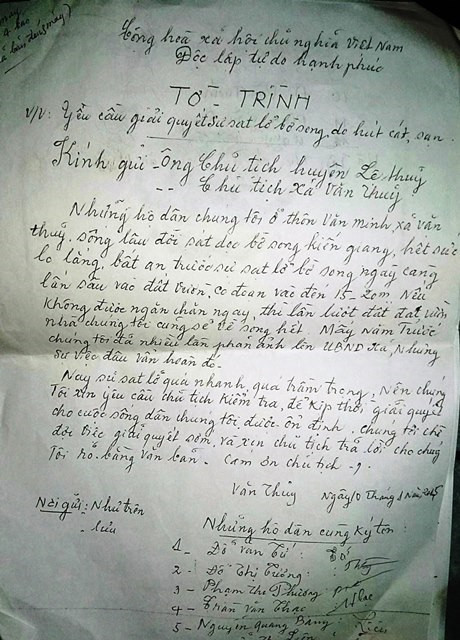 Cộng hoà xã hội chủ nghĩa Việt Nam
Độc lập tự do hạnh phúc
TỜ - TRÌNH
V/v: Yêu cầu giải quyết sự sạt lở bờ sông, do hút cát, sạn.
Kính gửi - Ông Chủ tịch huyện Lệ thuỷ
- - Chủ tịch xã Văn Thuỷ
Những hộ dân chúng tôi ở thôn Văn minh, xã văn
thuỷ, sống lâu đời sát dọc bờ sông kiến giang, hết sức
lo lắng, bất an trước sự sạt lở bờ sông ngày càng
lấn sâu vào đất vườn, có đoạn vào đến 15-20m. Nếu
không được ngăn chặn ngay, thì lần lượt đất đai vườn
nhà chúng tôi cũng sẽ về sông hết. Mấy năm trước
chúng tôi đã nhiều lần phản ảnh lên UBND xã, Nhưng
sự việc đâu vẫn hoàn đó.
Nay sự sạt lở quá nhanh, quá trầm trọng, Nên chúng
Tôi xin yêu cầu chủ tịch kiểm tra, để kịp thời giải quyết
cho cuộc sống dân chúng tôi được ổn định. chúng tôi chờ
đợi việc giải quyết sớm, và xin chủ tịch trả lời cho chúng
Tôi rõ bằng văn bản - Cám ơn chủ tịch
Văn Thuỷ Ngày 10 Tháng
Nơi gửi: Như trên
- lưu
Những hộ dân cùng ký tên:
1 - Đỗ Văn Tứ: Tứ
2 - Đỗ Thị Tưởng:
3 - Phạm thị Phương
4 - Trần Văn Thạc
5 - Nguyễn Quang Bảng: